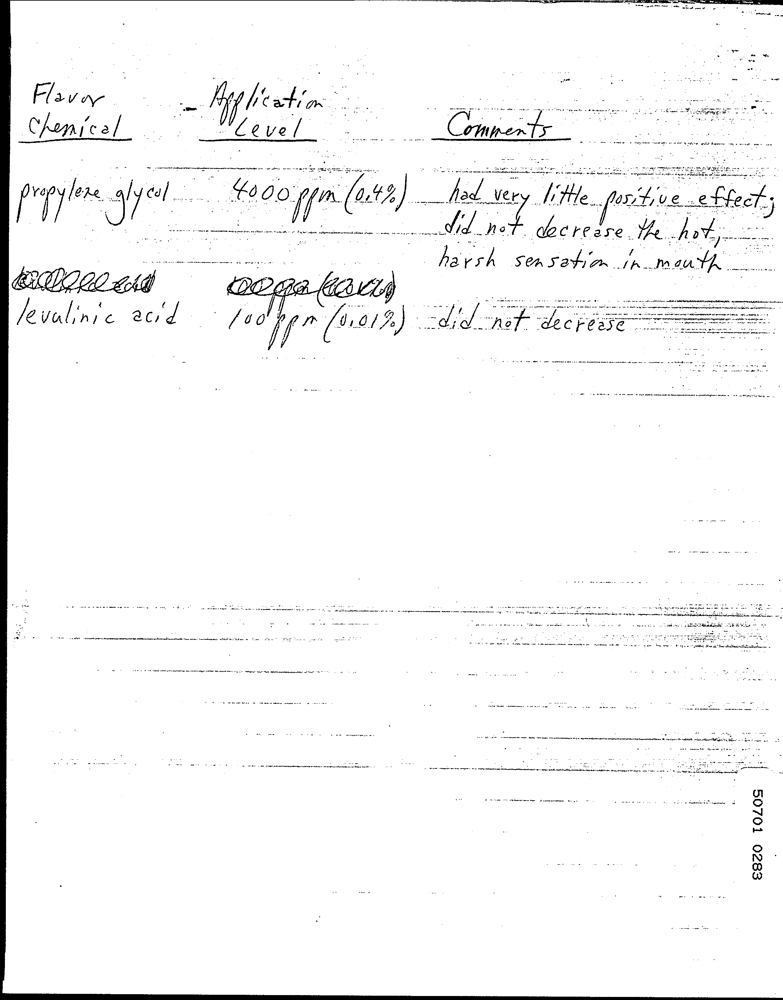 Flavor Application
Chemical Level Comments
propylene glycol 4000 ppm (0.4%) had very little positive effect;
did not decrease the hot,
harsh sensation in mouth
levulinic acid 100 ppm (0.01%) did not decrease
50701 0283